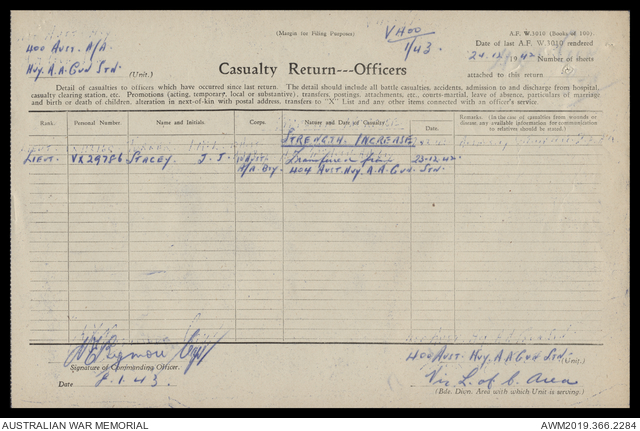 (Margin for Filing Purposes)
V400
1/43
A.F. W.3010 (Books of 100)
400 Aust. A/A.
Hvy. A.A. Gun Stn. (Unit.)
Date of last A.F. W.3010 rendered
1942 Number of sheets
attached to this return
Casualty Return---Officers
Detail of casualties to officers which have occurred since last return. The detail should include all battle casualties, accidents, admission to and discharge from hospital,
casualty clearing station, etc. Promotions (acting, temporary, local or substantive), transfers, postings, attachments, etc., courts-martial, leave of absence, particulars of marriage
and birth or death of children, alteration in next-of-kin with postal address, transfers to "X" List and any other items connected with an officer's service.
Rank. Personal Number. Name and Initials. Corps. Nature and Date of Casualty Date. Remarks (In the case of casualties from wounds or disease any available information for communication to relatives should be stated.)
STRENGTH INCREASE
LIEUT. VX29756 STACEY. J. J. Transferred from 23-12-42.
A/A Bty. 404 Aust. Hvy. A.A. Gun. Stn.
Signature of Commanding Officer.
Date 8.1.43.
400 Aust. Hvy. A.A Gun Stn. (Unit.)
Vic L. of C. Area
(Bde. Divn. Area with which Unit is serving)
AUSTRALIAN WAR MEMORIAL
AWM2019.366.2284